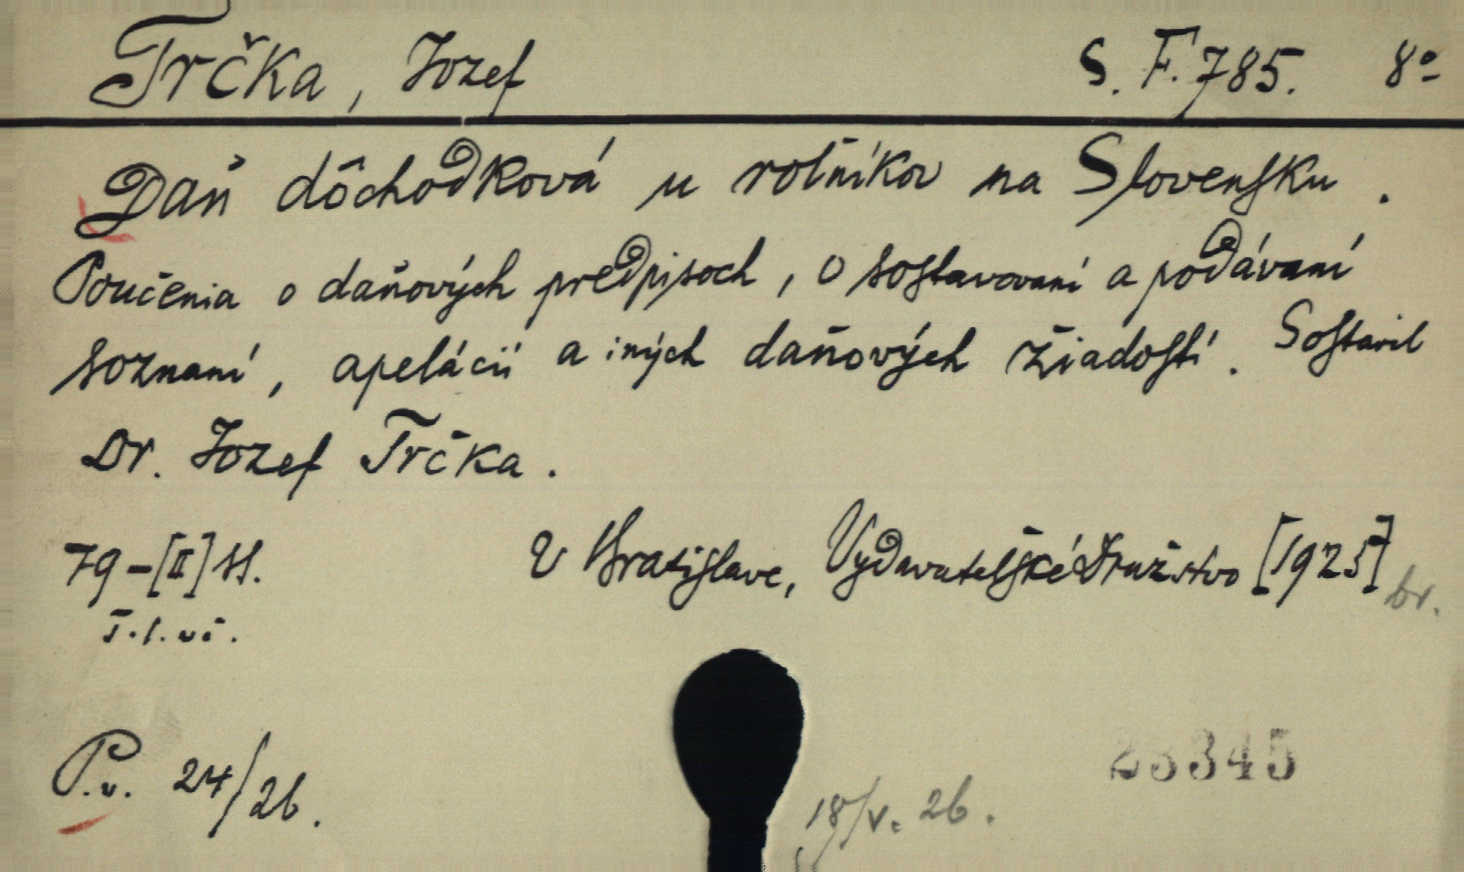 Trčka, Jozef S. F. 785. 8º
Daň dôchodková u rolníkov na Slovensku.
Poučenia o daňových predpisoch, o sostavovaní a podávaní
soznaní, apelácií a iných daňových žiadostí. Sostavil
Dr. Jozef Trčka.
79-[II] ss. V Bratislave, Vydavatelské Družstvo [1925] br.
T. l. uč.
P.v. 24/26.
18/V. 26.
23345